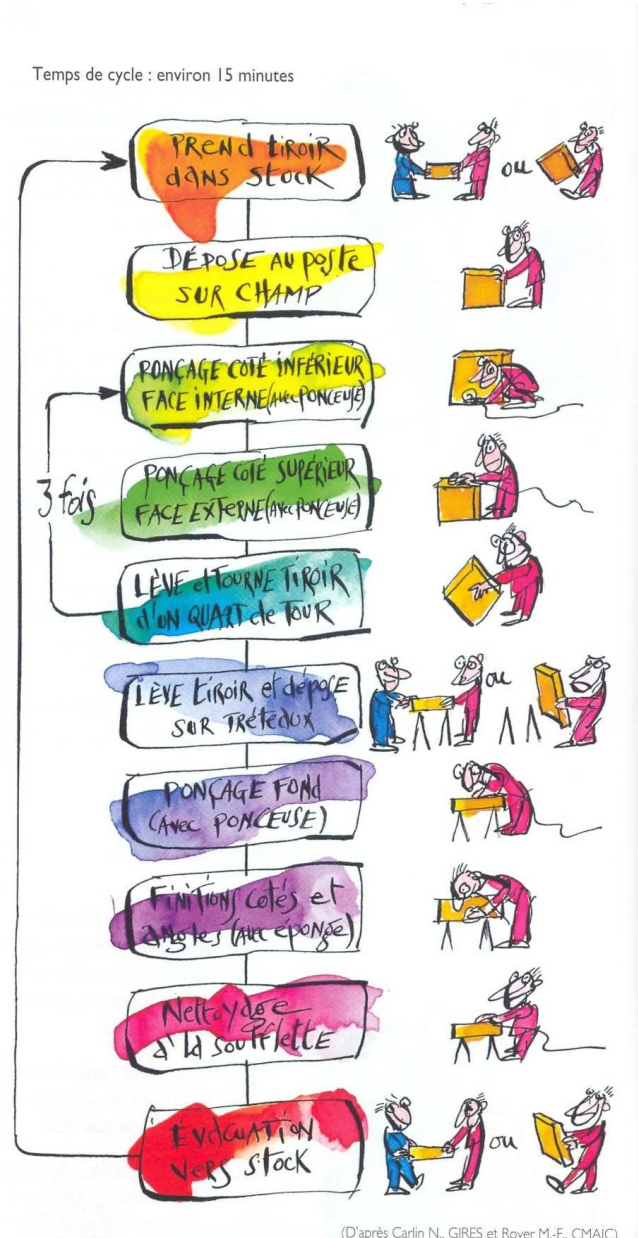 Temps de cycle : environ 15 minutes
PREND tiROIR
dANS StOCK
ou
DÉPOSE AU POSTE
SUR CHAMP
PONÇAGE COTÉ INFÉRIEUR
FACE INTERNE (AVEC PONCEUSE)
3 fois
PONÇAGE COTÉ SUPÉRIEUR
FACE EXTERNE (AVEC PONCEUSE)
LÈVE et TOURNE TIROIR
d'UN QUART de TOUR
LÈVE tiROIR et dépose
SUR TRÉTEAUX
ou
PONÇAGE FOND
(AVEC PONCEUSE)
FINITIONS COTÉS et
ANGLES (AVEC éponge)
Nettoyage
à la soufflette
ÉVACUATION
VERS STOCK
ou
(D'après Carlin N., GIRES et Royer M.-F., CMAIC)